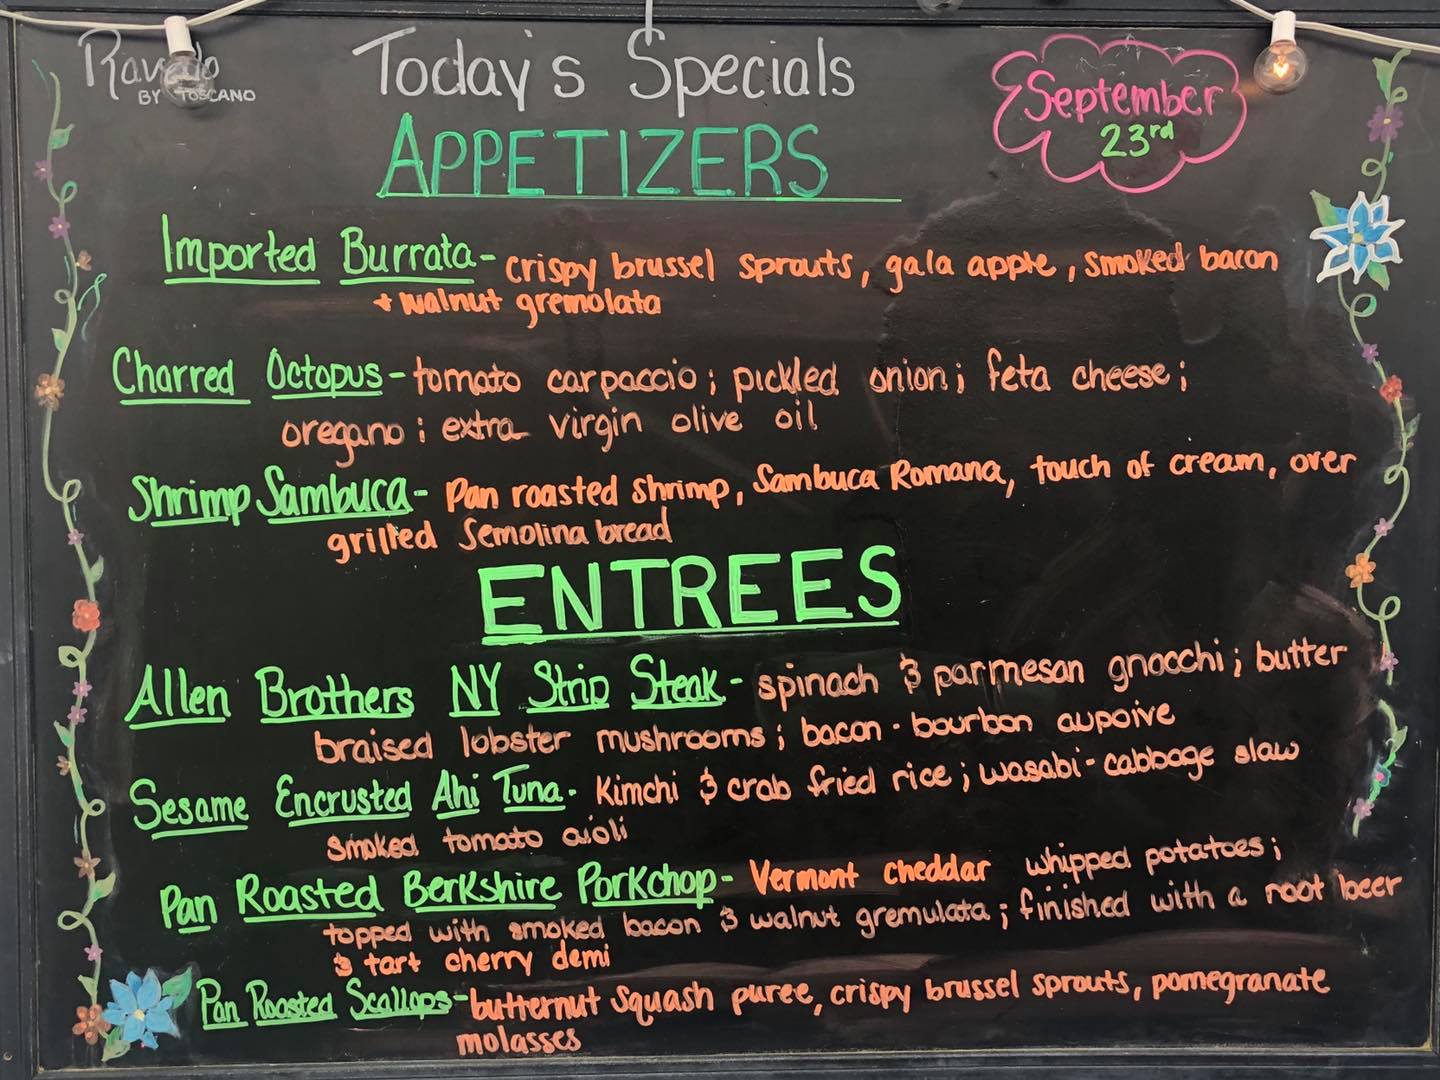 Ravello
BY TOSCANO
Today's Specials
September
23rd
APPETIZERS
Imported Burrata - crispy brussel sprouts, gala apple, smoked bacon
+ walnut gremolata
Charred Octopus - tomato carpaccio; pickled onion; feta cheese;
oregano; extra virgin olive oil
Shrimp Sambuca - Pan roasted shrimp, Sambuca Romana, touch of cream, over
grilled Semolina bread
ENTREES
Allen Brothers NY Strip Steak - spinach & parmesan gnocchi; butter
braised lobster mushrooms; bacon-bourbon aupoive
Sesame Encrusted Ahi Tuna - Kimchi & crab fried rice; wasabi-cabbage slaw
smoked tomato aioli
Pan Roasted Berkshire Porkchop - Vermont cheddar whipped potatoes;
topped with smoked bacon & walnut gremulata; finished with a root beer
& tart cherry demi
Pan Roasted Scallops - butternut squash puree, crispy brussel sprouts, pomegranate
molasses